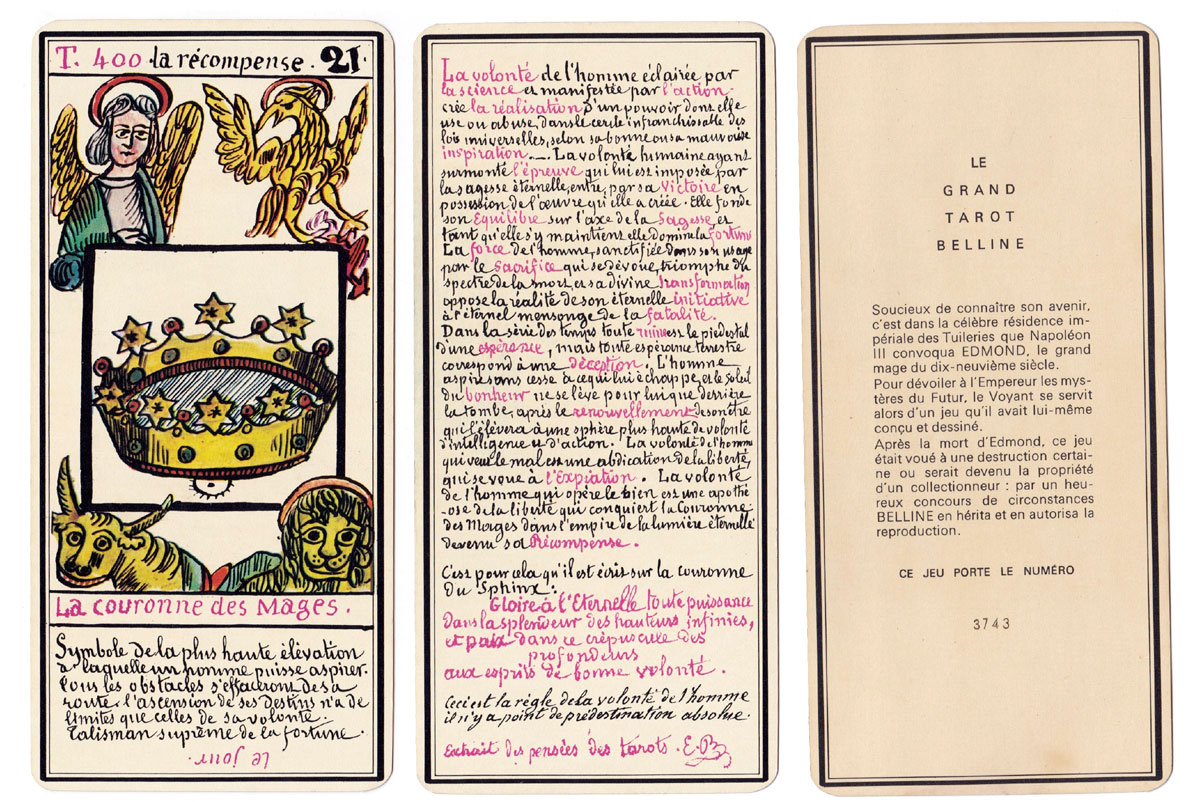 T. 400 · la récompense · 21 ·
La couronne des Mages .
Symbole de la plus haute élévation
à laquelle un homme puisse aspirer.
Tous les obstacles s'effaceront de sa
route. l'ascension de ses destins n'a de
limites que celles de sa volonté.
Talisman suprême de la fortune.
Le jour.
La volonté de l'homme éclairée par
la science et manifestée par l'action
crée la réalisation d'un pouvoir dont elle
use ou abuse, dans le cercle infranchissable des
lois universelles, selon sa bonne ou sa mauvaise
inspiration. — La volonté humaine ayant
surmonté l'épreuve qui lui est imposée par
la sagesse éternelle, entre, par sa victoire en
possession de l'œuvre qu'elle a créée. Elle fonde
son Equilibre sur l'axe de la Sagesse, et
tant qu'elle s'y maintient elle domine la fortune
La force de l'homme, sanctifiée dans son usage
par le Sacrifice qui se dévoue, triomphe du
spectre de la mort, et sa divine transformation
oppose la réalité de son éternelle initiative
à l'éternel mensonge de la fatalité.
Dans la série des temps toute ruine est le piedestal
d'une espérance, mais toute espérance terrestre
correspond à une déception. L'homme
aspire sans cesse à ce qui lui échappe, et le soleil
du bonheur ne se lève pour lui que derrière
la tombe, après le renouvellement de son être
qui l'élèvera à une sphère plus haute de volonté
d'intelligence et d'action. La volonté de l'homme
qui veut le mal est une abdication de la liberté,
qui se voue à l'Expiation. La volonté
de l'homme qui opère le bien est une apothé
-ose de la liberté qui conquiert la Couronne
des Mages dans l'empire de la lumière éternelle
devenu sa Récompense.
C'est pour cela qu'il est écrit sur la couronne
du Sphinx:
Gloire à l'Eternelle toute puissance
dans la splendeur des hauteurs infinies,
et paix dans ce crépuscule des
profondeurs
aux esprits de bonne volonté.
Ceci est la règle de la volonté de l'homme
il n'y a point de prédestination absolue.
Extrait des pensées des tarots. E.B
LE
GRAND
TAROT
BELLINE
Soucieux de connaître son avenir,
c'est dans la célèbre résidence im-
périale des Tuileries que Napoléon
III convoqua EDMOND, le grand
mage du dix-neuvième siècle.
Pour dévoiler à l'Empereur les mys-
tères du Futur, le Voyant se servit
alors d'un jeu qu'il avait lui-même
conçu et dessiné.
Après la mort d'Edmond, ce jeu
était voué à une destruction certai-
ne ou serait devenu la propriété
d'un collectionneur : par un heu-
reux concours de circonstances
BELLINE en hérita et en autorisa la
reproduction.
CE JEU PORTE LE NUMÉRO
3743